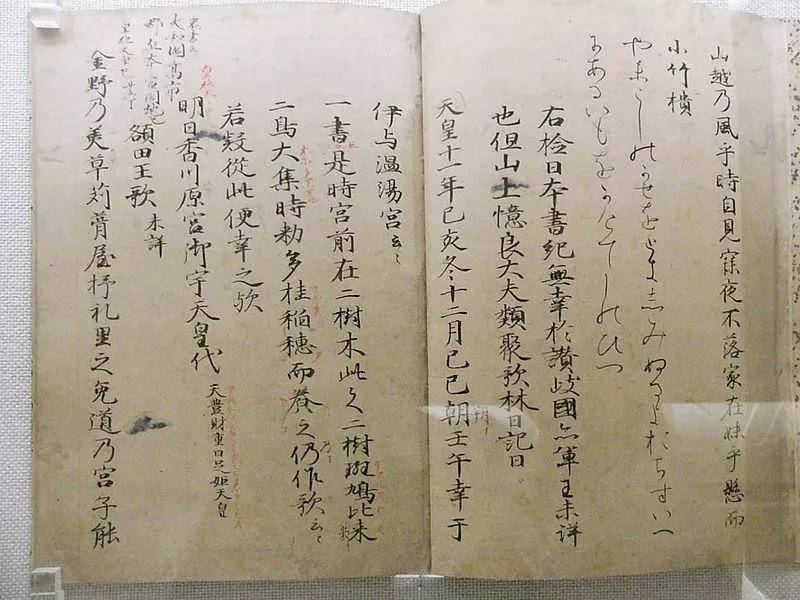 山越乃風乎時自見寐夜不落家在妹乎懸而
小竹樻
やまこしのかせをときしみぬるよおちすいへ
にあるいもをかけてしのひつ
右撿日本書紀無幸於讃岐國亦軍王未詳
也但山上憶良大夫類聚歌林曰記曰
天皇十一年己亥冬十二月己巳朝壬午幸于
朔
伊与温湯宮云〻
一書是時宮前在二樹木此之二樹斑鳩比米
二鳥大集時勅多桂稲穂而養之仍作歌云〻
若疑從此便幸之歟
明日香川原宮御宇天皇代 天豊財重日足姫天皇
額田王歌 未詳
大和國高市
金野乃美草苅葺屋杼礼里之兔道乃宮子能